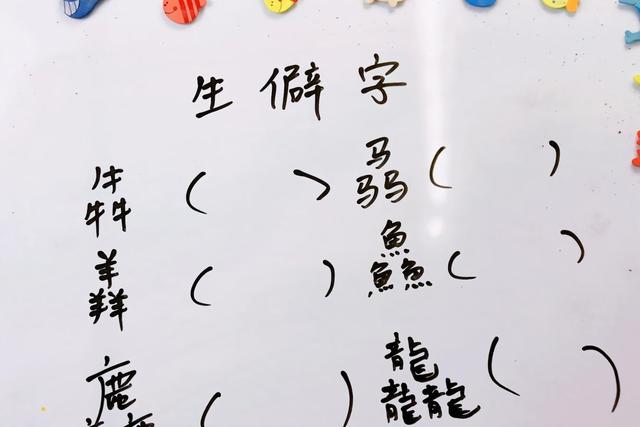 生僻字
犇（ ） 骉（ ）
羴（ ） 鱻（ ）
麤（ ） 龘（ ）